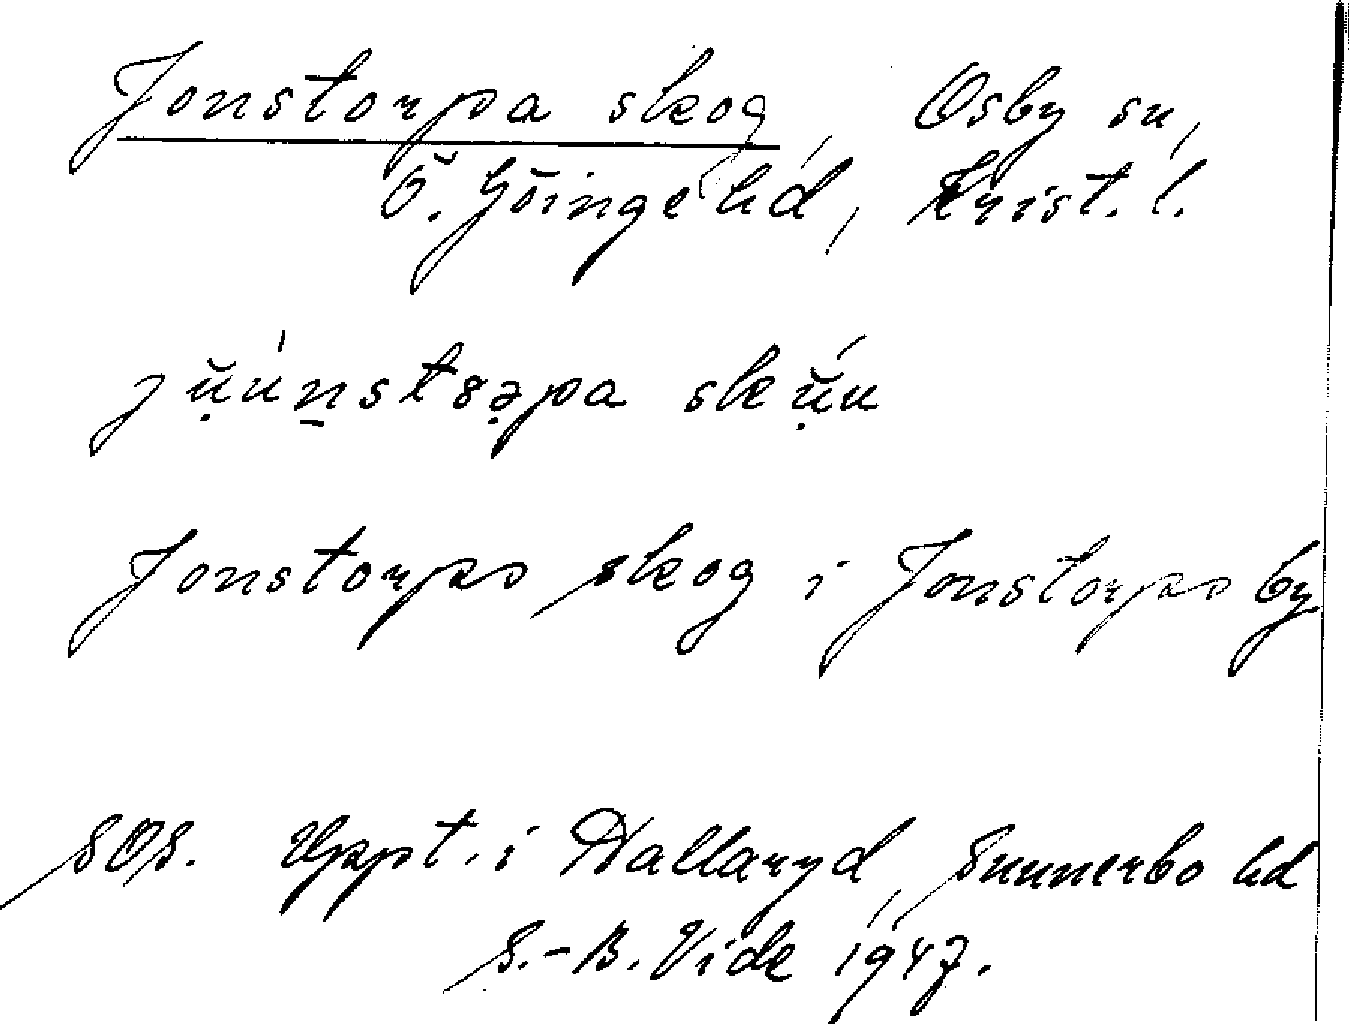 Jonstorpa skog, Osby sn,
Ö. Göinge hd, Krist. l.
Jonstorps skog i Jonstorps by
SOS. Uppt. i Hallaryd, Sunnerbo hd
S.-B. Vide 1947.